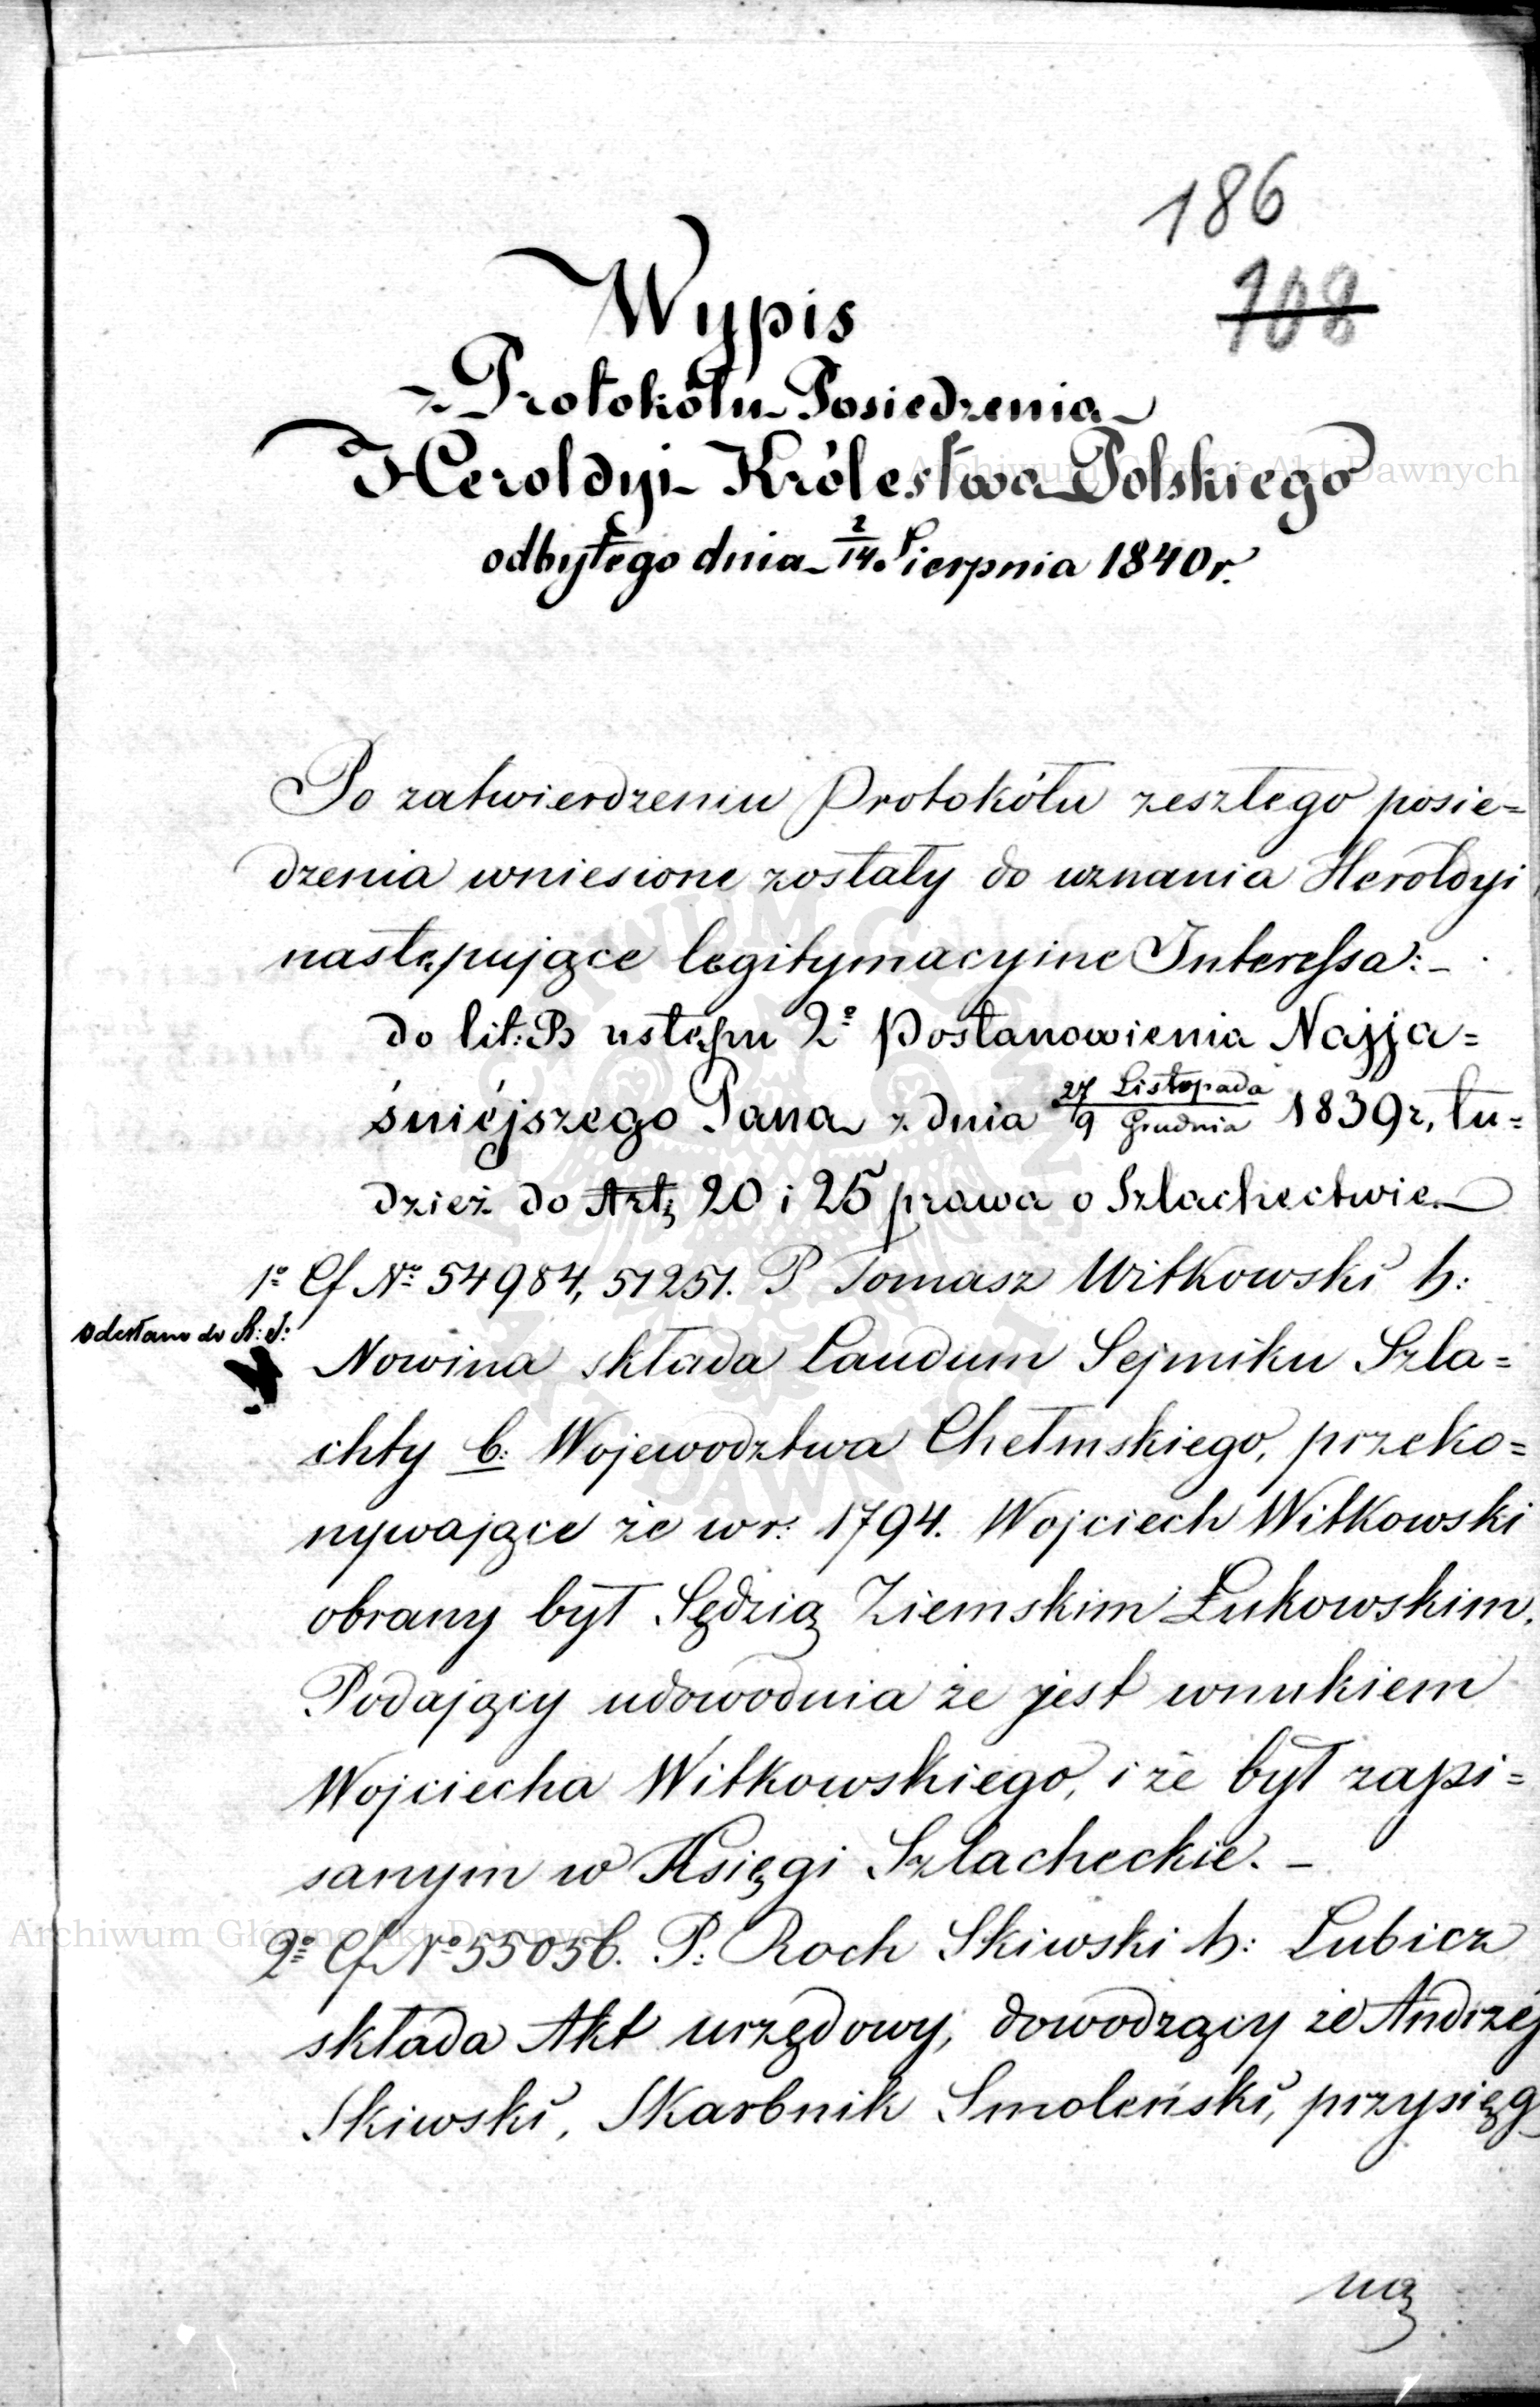 186
108
Wypis
z Protokółu Posiedzenia
Heroldyi Królestwa Polskiego
odbytego dnia 2/14 Sierpnia 1840 r.
Po zatwierdzeniu Protokółu zeszłego posie=
dzenia wniesione zostały do uznania Heroldyi
następujące legitymacyine Interessa: –
do lit: B ustępu 2º Postanowienia Najja=
śniéjszego Pana z dnia 27 Listopada/9 Grudnia 1839 r, tu=
dzież do Art; 20 i 25 prawa o Szlachectwie
1º Cf Nº 54984, 51251. P Tomasz Witkowski h:
odesłano do R: S:
Nowina składa Laudum Sejmiku Szla=
chty b: Wojewodztwa Chełmskiego, przeko=
nywające że w r: 1794. Wojciech Witkowski
obrany był Sędzią Ziemskim Łukowskim.
Podający udowodnia że jest wnukiem
Wojciecha Witkowskiego, i że był zapi=
sanym w Księgi Szlacheckie. –
2º Cf Nº 55056. P: Roch Skiwski h: Lubicz
składa Akt urzędowy, dowodzący że Andrzéj
Skiwski, Skarbnik Smoleński, przysięg
ną
Archiwum Główne Akt Dawnych
Archiwum Główne Akt Dawnych